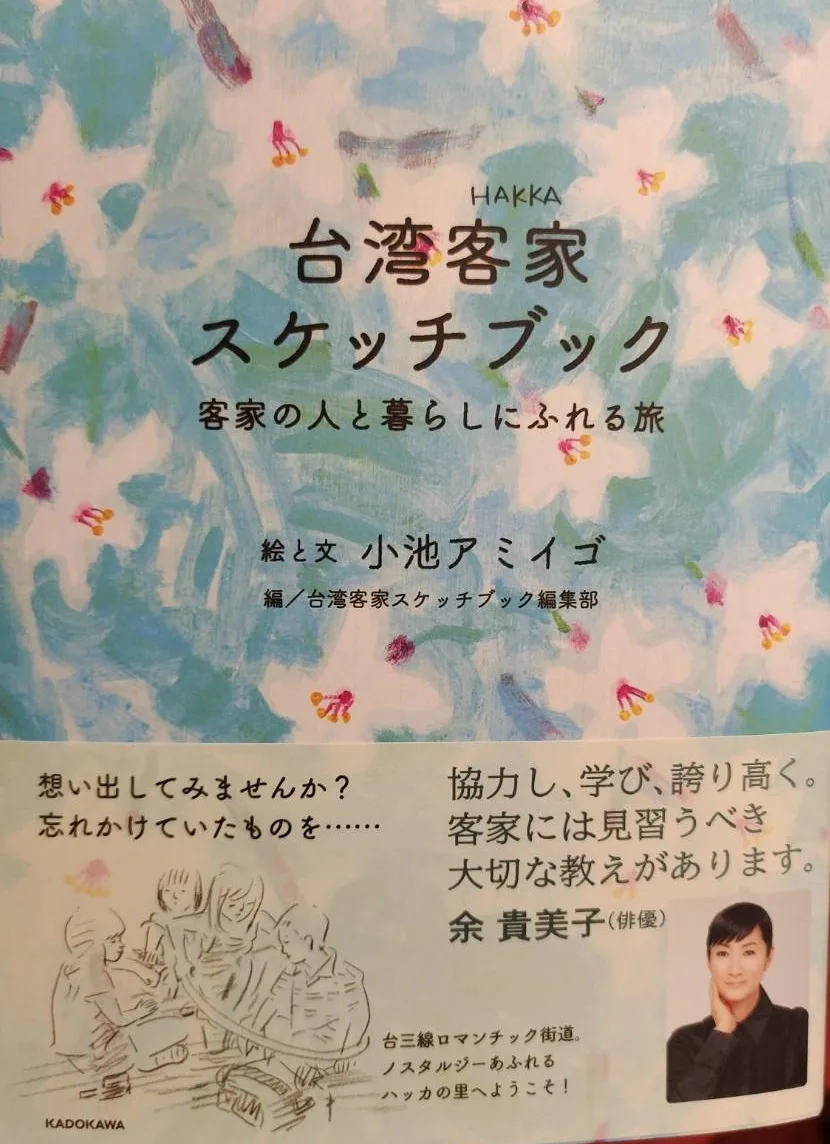 HAKKA
台湾客家
スケッチブック
客家の人と暮らしにふれる旅
絵と文 小池アミイゴ
編／台湾客家スケッチブック編集部
想い出してみませんか？
忘れかけていたものを……
協力し、学び、誇り高く。
客家には見習うべき
大切な教えがあります。
余 貴美子（俳優）
台三線ロマンチック街道。
ノスタルジーあふれる
ハッカの里へようこそ！
KADOKAWA